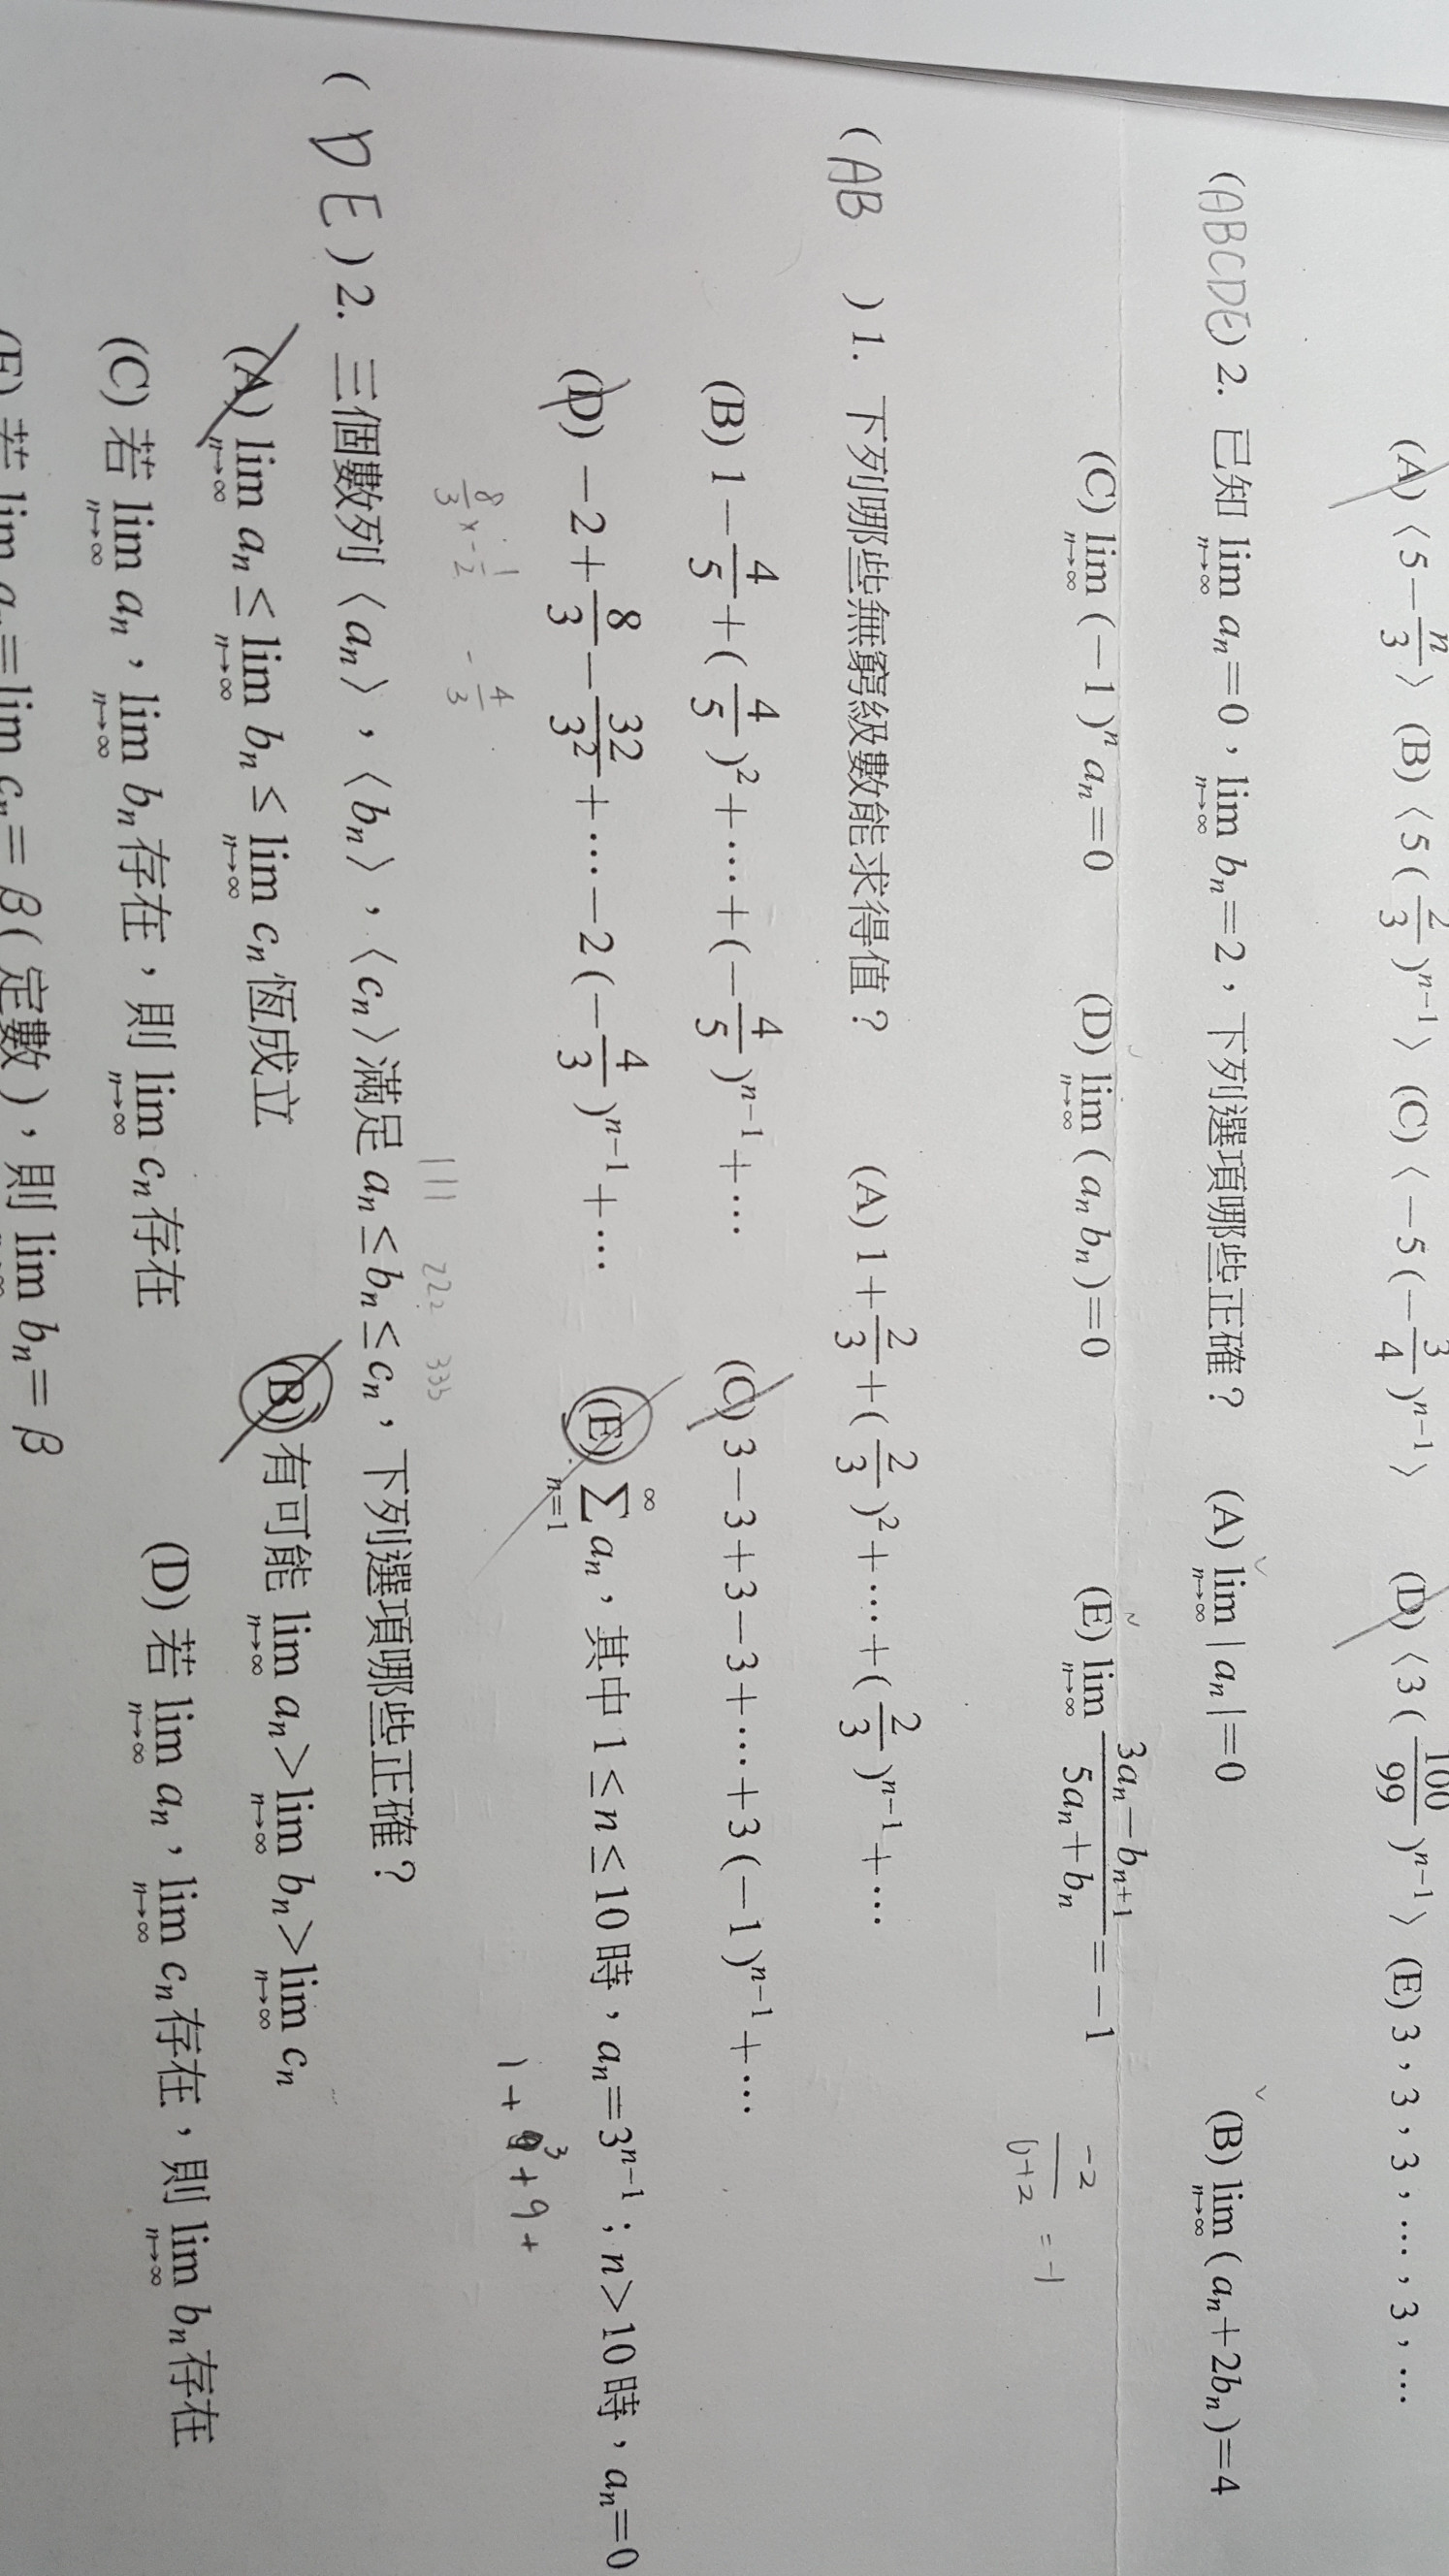 (A)⟨5-n/3⟩ (B)⟨5(2/3)ⁿ⁻¹⟩ (C)⟨-5(-3/4)ⁿ⁻¹⟩ (D)⟨3(100/99)ⁿ⁻¹⟩ (E)3,3,3,3,…,3,…
(ABCDE)2. 已知 lim n→∞ aₙ=0,lim n→∞ bₙ=2,下列選項哪些正確? (A) lim n→∞ |aₙ|=0 (B) lim n→∞ (aₙ+2bₙ)=4
(C) lim n→∞ (-1)ⁿ aₙ=0 (D) lim n→∞ (aₙ bₙ)=0 (E) lim n→∞ (3aₙ-bₙ₊₁)/(5aₙ+bₙ)=-1
-2/0+2 = -1
(AB)1. 下列哪些無窮級數能求得值? (A) 1+2/3+(2/3)²+…+(2/3)ⁿ⁻¹+…
(B) 1-4/5+(4/5)²+…+(-4/5)ⁿ⁻¹+… (C) 3-3+3-3+…+3(-1)ⁿ⁻¹+…
(D) -2+8/3-32/3²+…-2(-4/3)ⁿ⁻¹+… (E) ∞ Σ n=1 aₙ,其中 1≤n≤10時,aₙ=3ⁿ⁻¹;n>10時,aₙ=0
8/3 × -1/2 -4/3
1+3+9+
111 222 333
(DE)2. 三個數列⟨aₙ⟩,⟨bₙ⟩,⟨cₙ⟩滿足 aₙ≤bₙ≤cₙ,下列選項哪些正確?
(A) lim n→∞ aₙ≤lim n→∞ bₙ≤lim n→∞ cₙ恆成立 (B) 有可能 lim n→∞ aₙ>lim n→∞ bₙ>lim n→∞ cₙ
(C) 若 lim n→∞ aₙ,lim n→∞ bₙ存在,則 lim n→∞ cₙ存在 (D) 若 lim n→∞ aₙ,lim n→∞ cₙ存在,則 lim n→∞ bₙ存在
(E) 若 lim aₙ=lim cₙ=β(定數),則 lim bₙ=β